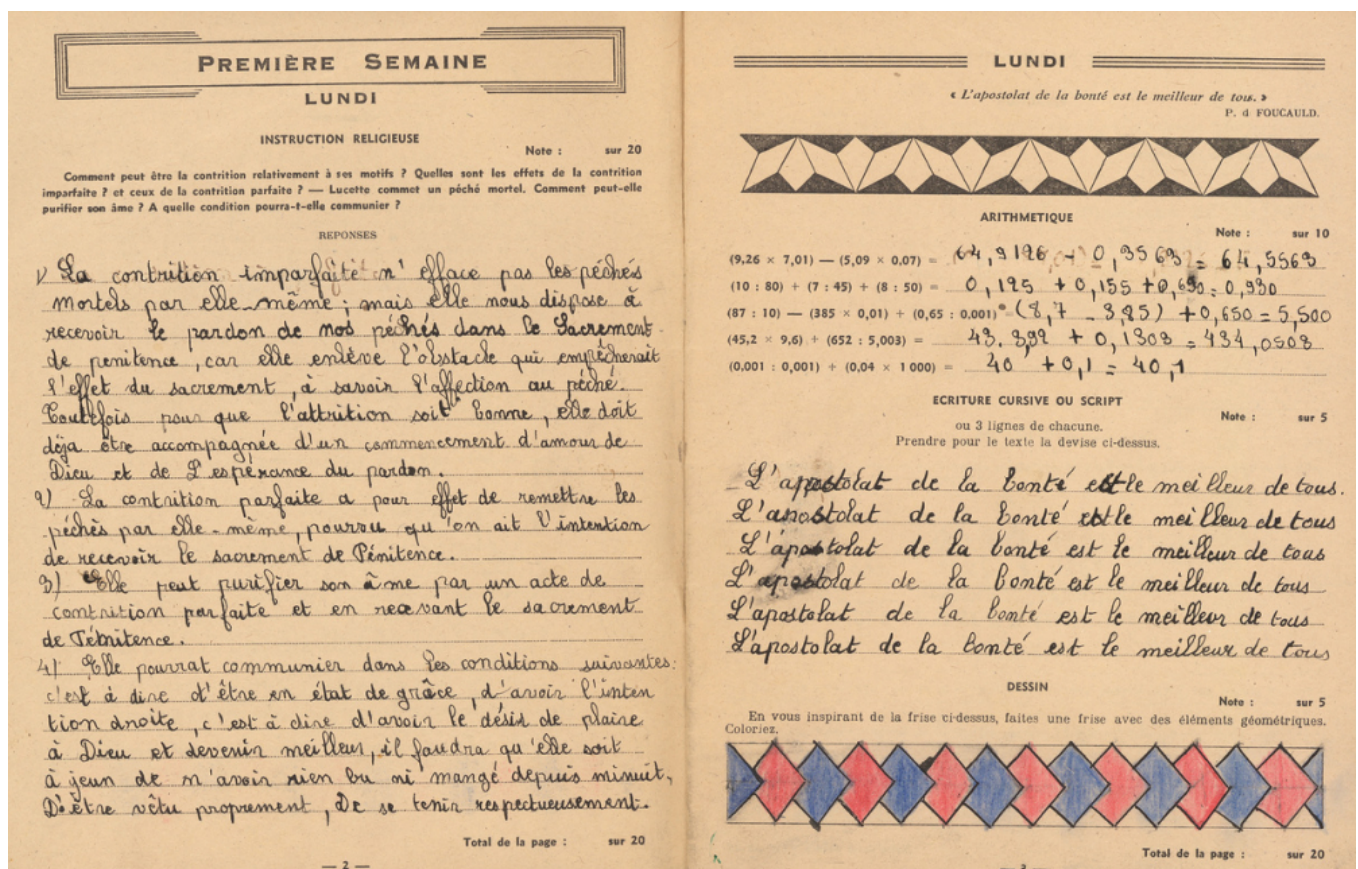 PREMIÈRE SEMAINE
LUNDI
INSTRUCTION RELIGIEUSE
Note : sur 20
Comment peut être la contrition relativement à ses motifs ? Quelles sont les effets de la contrition
imparfaite ? et ceux de la contrition parfaite ? — Lucette commet un péché mortel. Comment peut-elle
purifier son âme ? A quelle condition pourra-t-elle communier ?
REPONSES
1/ La contrition imparfaite n'efface pas les péchés
mortels par elle-même ; mais elle nous dispose à
recevoir le pardon de nos péchés dans le Sacrement
de penitence, car elle enlève l'obstacle qui empêcherait
l'effet du sacrement, à savoir l'affection au péché.
Toutefois pour que l'attrition soit bonne, elle doit
déja être accompagnée d'un commencement d'amour de
Dieu et de L'espérance du pardon.
2/ La contrition parfaite a pour effet de remettre les
péchès par elle-même, pourvu qu'on ait l'intention
de recevoir le sacrement de Pénitence.
3/ Elle peut purifier son âme par un acte de
contrition parfaite et en recevant le sacrement
de
4/ Elle pourrat communier dans les conditions suivantes:
c'est à dire d'être en état de grâce, d'avoir l'inten
tion droite, c'est à dire d'avoir le désir de plaire
à Dieu et devenir meilleur, il faudra qu'elle soit
à jeun de n'avoir rien bu ni mangé depuis minuit,
D'être vêtu proprement, De se tenir respectueusement.
Total de la page : sur 20
— 2 —
LUNDI
« L'apostolat de la bonté est le meilleur de tous. »
P. d FOUCAULD.
ARITHMETIQUE
Note : sur 10
(9,26 × 7,01) — (5,09 × 0,07) = 64,9126 - 0,3563 = 64,5563
(10 : 80) + (7 : 45) + (8 : 50) = 0,125 + 0,155 + 0,650 = 0,930
(87 : 10) — (385 × 0,01) + (0,65 : 0,001) = (8,7 - 3,85) + 0,650 = 5,500
(45,2 × 9,6) + (652 : 5,003) = 43.392 + 0,1303 = 434,0503
(0,001 : 0,001) + (0,04 × 1 000) = 40 + 0,1 = 40,1
ECRITURE CURSIVE OU SCRIPT
Note : sur 5
ou 3 lignes de chacune.
Prendre pour le texte la devise ci-dessus.
L'apostolat de la bonté est le meilleur de tous.
L'apostolat de la bonté est le meilleur de tous
L'apostolat de la bonté est le meilleur de tous
L'apostolat de la bonté est le meilleur de tous
L'apostolat de la bonté est le meilleur de tous
L'apostolat de la bonté est le meilleur de tous
DESSIN
Note : sur 5
En vous inspirant de la frise ci-dessus, faites une frise avec des éléments géométriques.
Coloriez.
Total de la page : sur 20
— 3 —